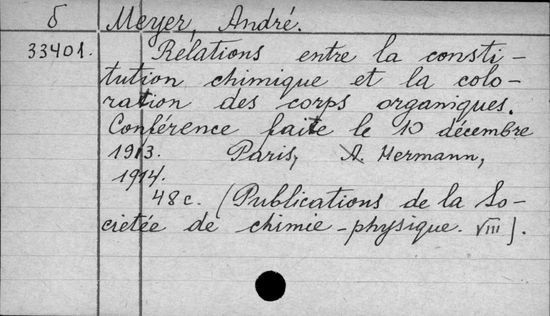 δ Meyer, André.
33401. Relations entre la consti-
tution chimique et la colo-
ration des corps organiques.
Conférence faite le 10 décembre
1913. Paris, A. Hermann,
1914.
48 c. (Publications de la So-
cietée de chimie-physique. VIII).